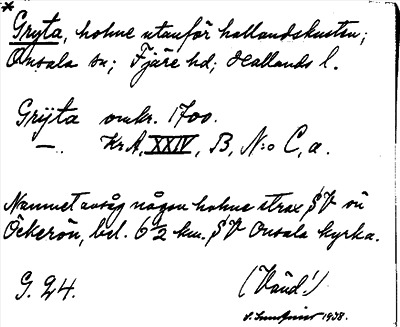 *
Gryta, holme utanför hallandskusten;
Onsala sn; Fjäre hd; Hallands l.
Grÿta omkr. 1700.
—. Kr.A, XXIV, B, N:o C, a.
Namnet avsåg någon holme strax SV om
Öckerön, bel. 6½ km. SV Onsala kyrka.
G. 24. (Vänd!)
1938.